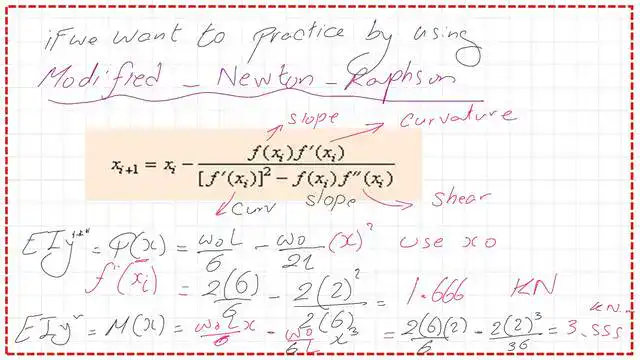 if we want to practice by using
Modified - Newton - Raphson
slope curvature
x_{i+1} = x_i - \frac{f(x_i)f'(x_i)}{[f'(x_i)]^2 - f(x_i)f''(x_i)}
curv slope shear
EIy''' = φ(x) = \frac{w_0 L}{6} - \frac{w_0}{2L}(x)^2 use x0
f''(x_i) = \frac{2(6)}{6} - \frac{2(2)^2}{2(6)} = 1.666 KN
EIy'' = M(x) = \frac{w_0 L x}{6} - \frac{w_0}{6L} x^3 = \frac{2(6)(2)}{6} - \frac{2(2)^3}{36} = 3.555 KN